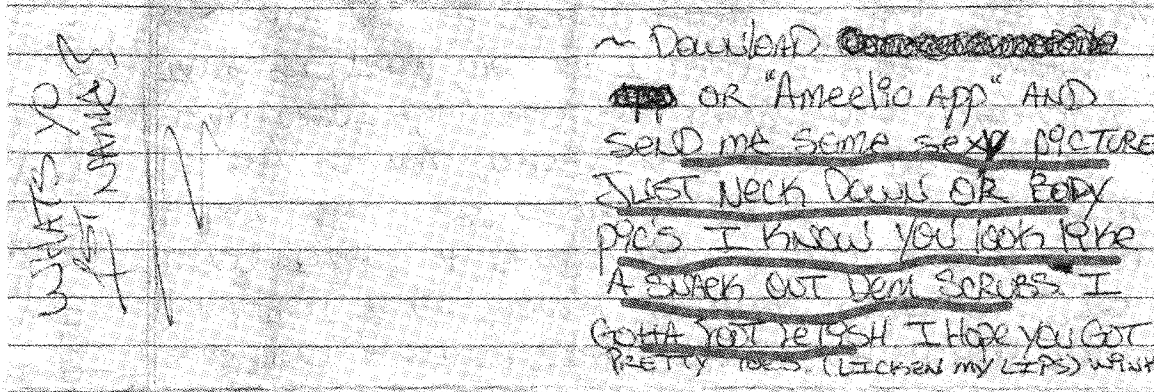 WHATS YO
1ST NAME?
~ DOWNLOAD
APP OR "Ameelio App" AND
SEND me Some Sexy PICTURE
JUST NECK DOWN OR BODY
PIC'S I KNOW YOU look like
A SNACK OUT Dem SCRUBS. I
GOTTA FOOT FETISH I Hope you GOT
PRETTY TOES. (LICKEN MY LIPS) WINK